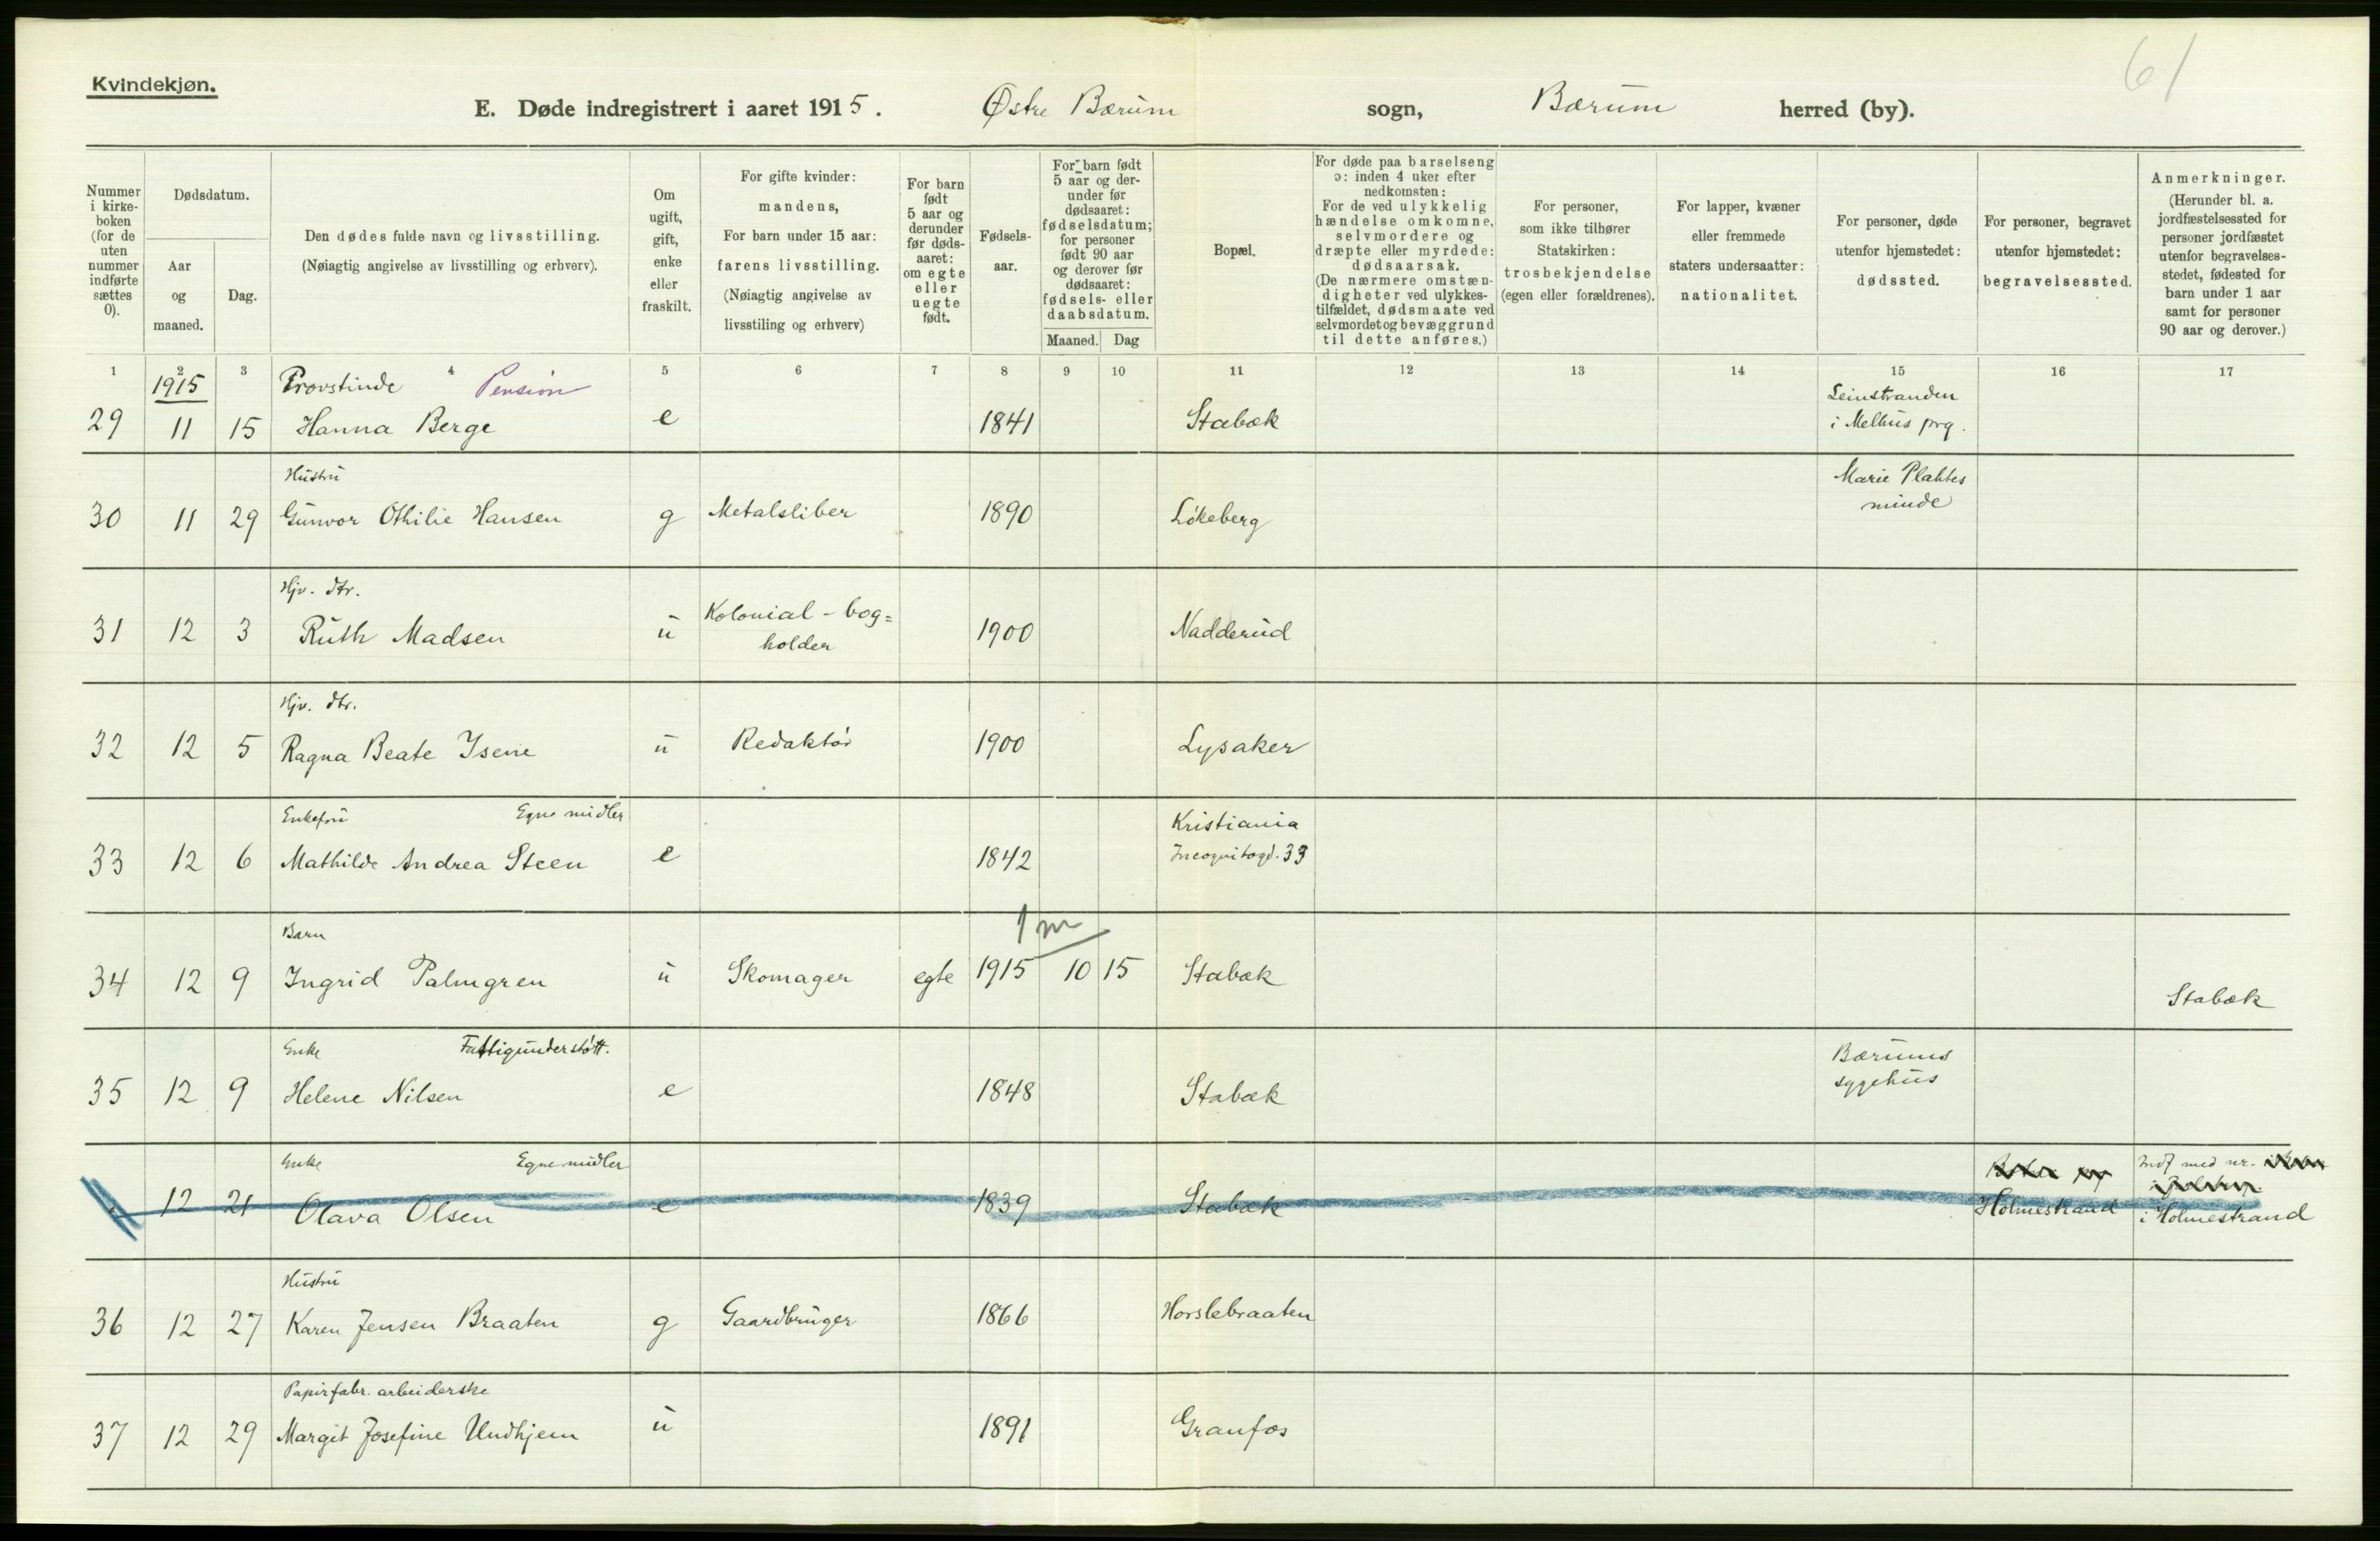 61
Kvindekjøn.
E. Døde indregistrert i aaret 1915. Østre Bærum sogn, Bærum herred (by).
Nummer i kirke-boken (for de uten nummer indførte sættes 0).
Dødsdatum.
Aar og maaned.
Dag.
Den dødes fulde navn og livsstilling.
(Nøiagtig angivelse av livsstilling og erhverv).
Om ugift, gift, enke eller fraskilt.
For gifte kvinder: mandens,
For barn under 15 aar: farens livsstilling.
(Nøiagtig angivelse av livsstiling og erhverv)
For barn født 5 aar og derunder før døds-aaret: om egte eller uegte født.
Fødsels-aar.
For barn født 5 aar og der-under før dødsaaret: fødselsdatum; for personer født 90 aar og derover før dødsaaret: fødsels- eller daabsdatum.
Maaned. Dag
Bopæl.
For døde paa barselseng ɔ: inden 4 uker efter nedkomsten:
For de ved ulykkelig hændelse omkomne, selvmordere og dræpte eller myrdede: dødsaarsak.
(De nærmere omstæn-digheter ved ulykkes-tilfældet, dødsmaate ved selvmordet og bevæggrund til dette anføres.)
For personer, som ikke tilhører Statskirken: trosbekjendelse (egen eller forældrenes).
For lapper, kvæner eller fremmede staters undersaatter: nationalitet.
For personer, døde utenfor hjemstedet: dødssted.
For personer, begravet utenfor hjemstedet: begravelsessted.
Anmerkninger.
(Herunder bl. a. jordfæstelsessted for personer jordfæstet utenfor begravelses-stedet, fødested for barn under 1 aar samt for personer 90 aar og derover.)
1 2 3 4 5 6 7 8 9 10 11 12 13 14 15 16 17
1915 Provstinde Pension Leinstranden
29 11 15 Hanna Berge e 1841 Stabæk i Melhus prg.
Hustru Marie Plahtes
30 11 29 Gunvor Othilie Hansen g Metalsliber 1890 Løkeberg minde
Hjv. dtr. Kolonial-bog=
31 12 3 Ruth Madsen u holder 1900 Nadderud
Hjv. dtr.
32 12 5 Ragna Beate Isene u Redaktør 1900 Lysaker
Enkefru Egne midler Kristiania
33 12 6 Mathilde Andrea Steen e 1842 Incognitogd. 33
Barn 1 m
34 12 9 Ingrid Palmgren u Skomager egte 1915 10 15 Stabæk Stabæk
Enke Fattigunderstøtt. Bærums
35 12 9 Helene Nilsen e 1848 Stabæk sygehus
Enke Egne midler Indf med nr.
12 21 Olava Olsen e 1839 Stabæk Holmestrand i Holmestrand
Hustru
36 12 27 Karen Jensen Braaten g Gaardbruger 1866 Horslebraaten
Papirfabr. arbeiderske
37 12 29 Margit Josefine Undhjem u 1891 Granfos